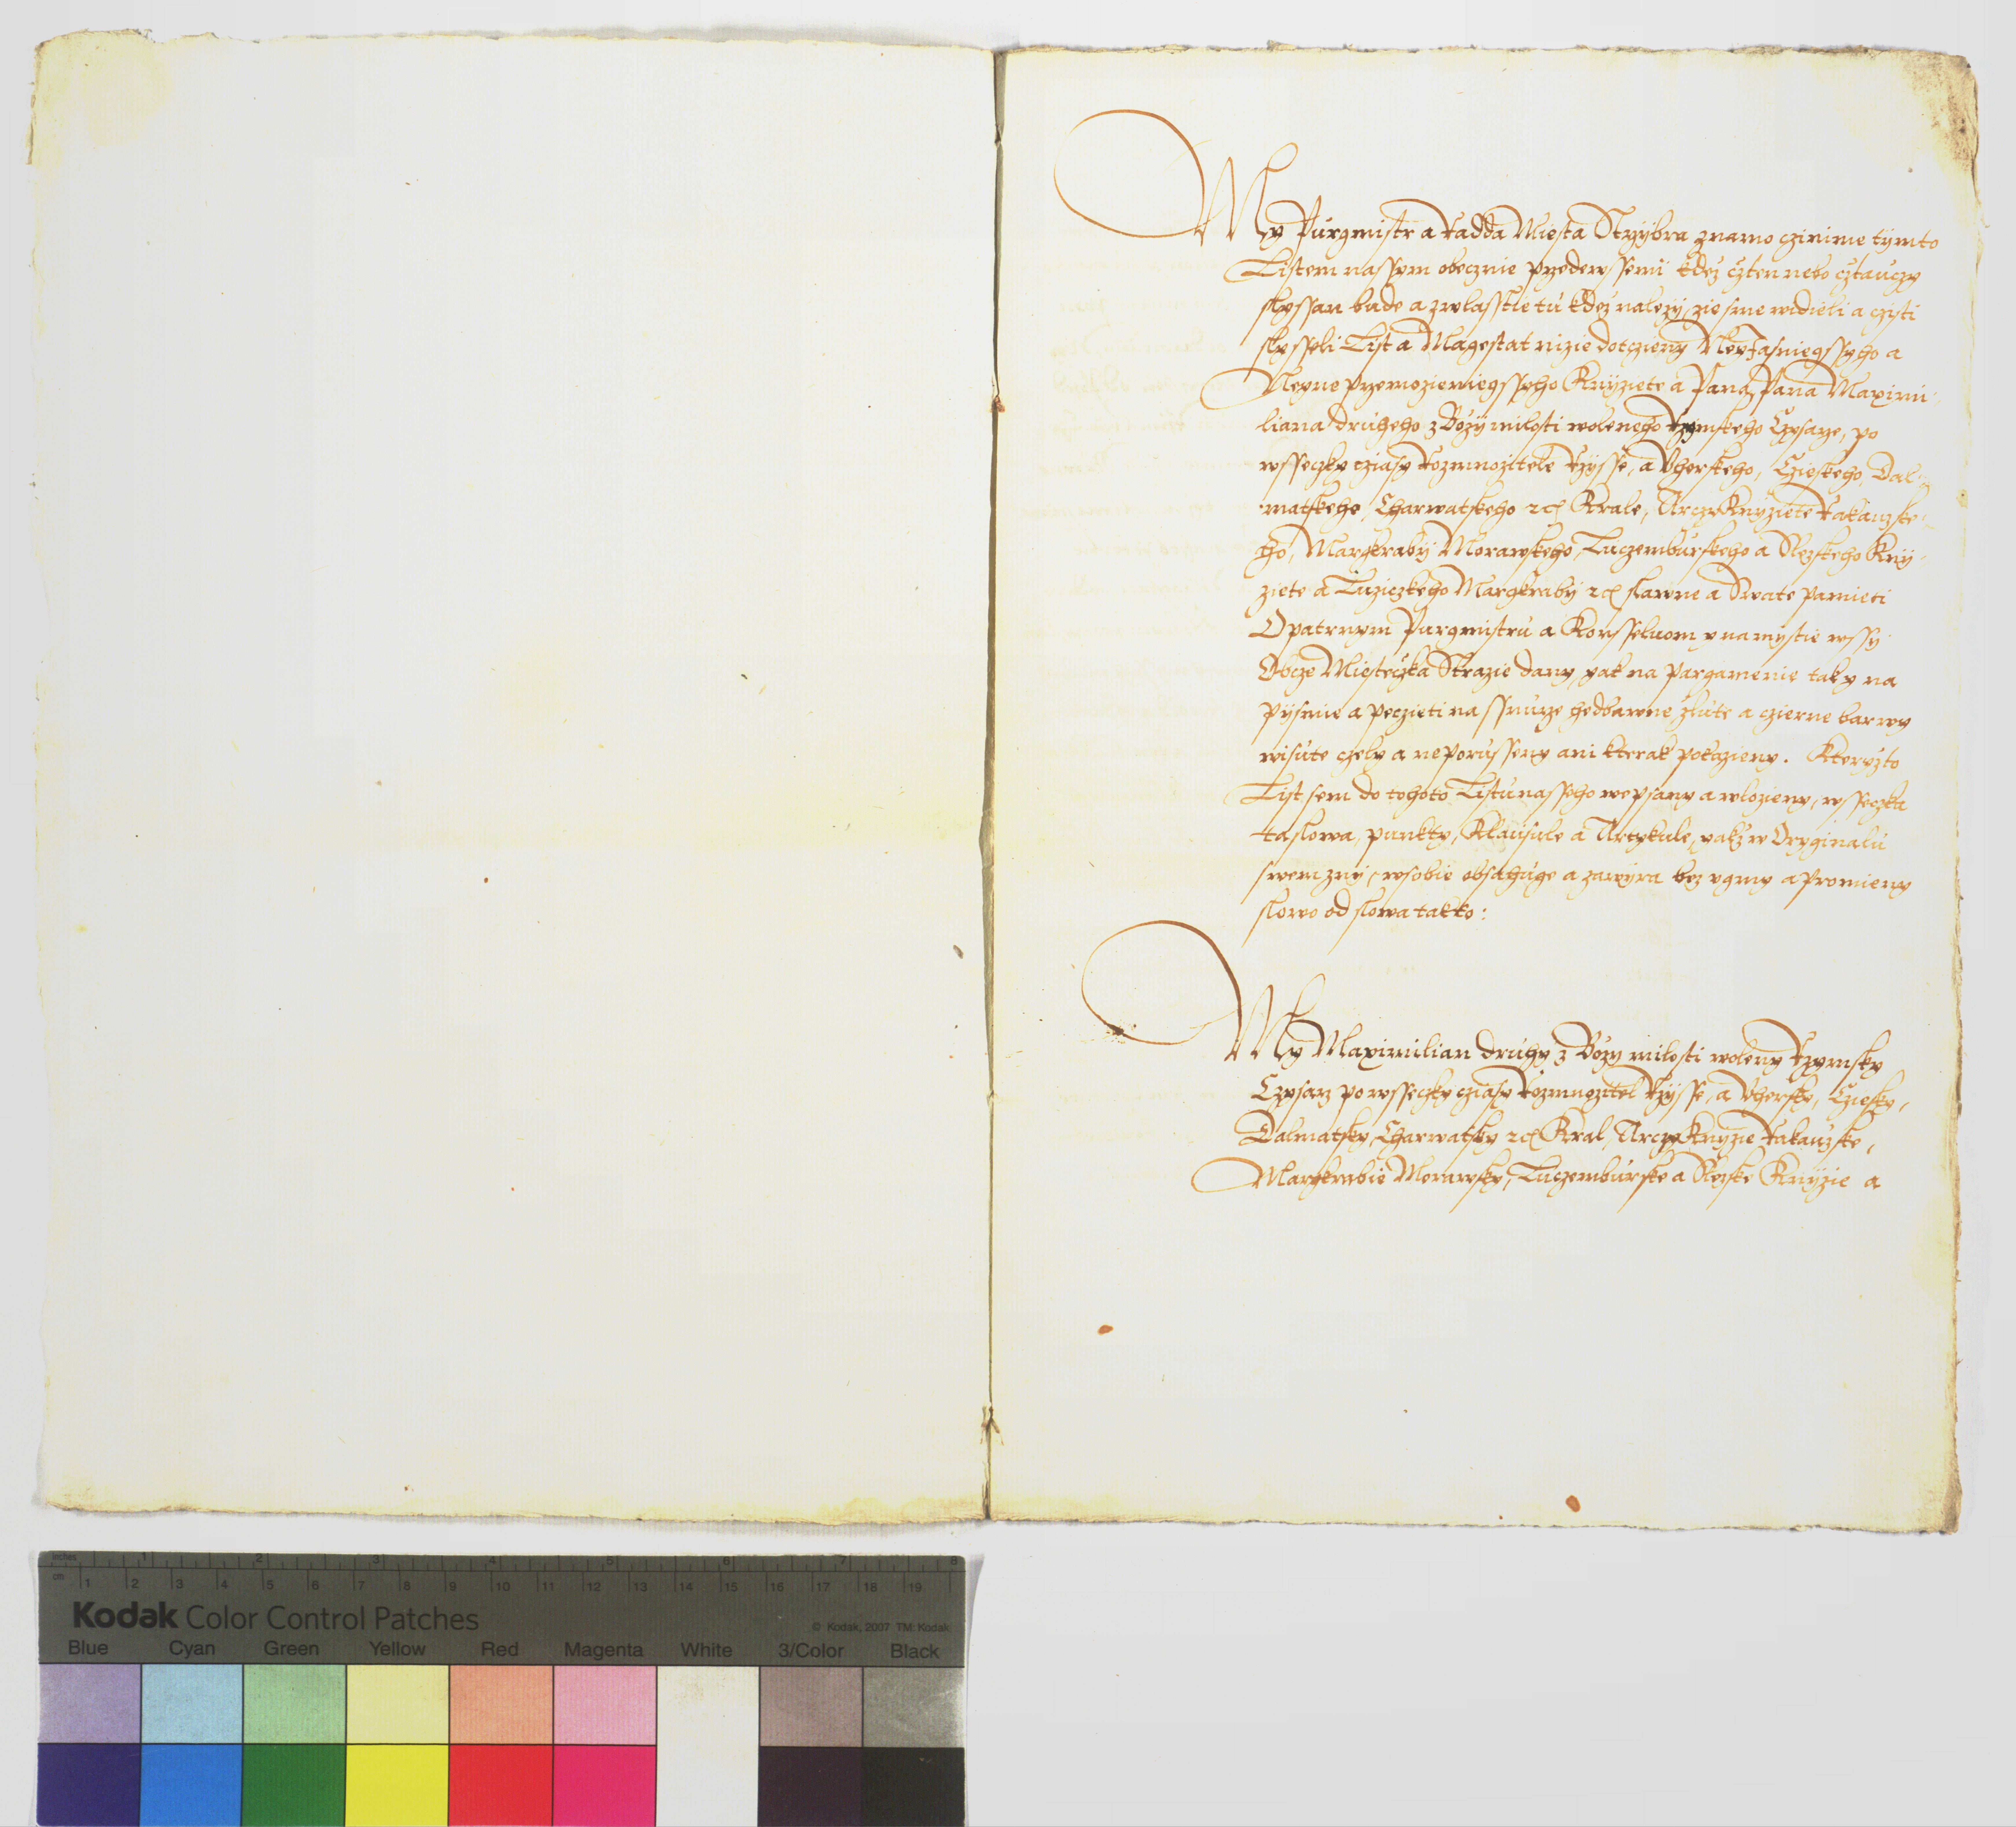 My Purgmistr a Radda Miesta Strzybra znamo czinime tijmto
Listem nassym obecznie przedewssemi kdez cżten nebo cżtauczy
slyssan bude a zwlasstie tu kdez nalezy, zie sme widieli a czisti
slysseli List a Magestat nizie dotczieny Neyjasniegssyho a
Neyneprzemozieniegssyho Knijziete a Pana, Pana Maximi-
liana druheho z Bozij milosti woleneho Rzymskeho Czysarze, po
wsseczky cziasy Rozmnozitele Rzijsse, a Vherskeho, Czieskeho, Dal-
matskeho, Charwatskeho ꝛcͥ Krale, ArczyKnijziete Rakauzske-
ho, Margkrabij Morawskeho, Luczemburskeho a Slezskeho Knij-
ziete a Luziczkeho Margkrabij ꝛc slawne a Swate pamieti
Opatrnym Purgmistru a Konsseluom y na mystie wssy
Obcze Miesteczka Strazie dany, yak na pargamenie tak y na
pijsmie a peczieti na ssnurze hedbawne zlute a czierne barwy
wisute czely a neporusseny ani kterak pokazieny. Kteryzto
List sem do tohoto Listu nasseho wepsany a wlozieny, wsseczka
ta slowa, punkty, Klausule a Artykule, yakz w Oryginalu
swem znij, w sobie obsahuge a zawijra bez vgmy a promieny
slowo od slowa takto:
My Maximilian druhy z Bozy milosti woleny Rzymsky
Czysarz po wsseczky cziasy Rozmnozitel Rzijsse, a Vhersky, Cziesky,
Dalmatsky, Charwatsky ꝛc Kral, ArczyKnijzie Rakauzske,
Margkrabie Morawsky, Luczemburske a Slezske Knijzie a
inches 1 2 3 4 5 6 7 8
cm 1 2 3 4 5 6 7 8 9 10 11 12 13 14 15 16 17 18 19
Kodak Color Control Patches © Kodak, 2007 TM: Kodak
Blue Cyan Green Yellow Red Magenta White 3/Color Black